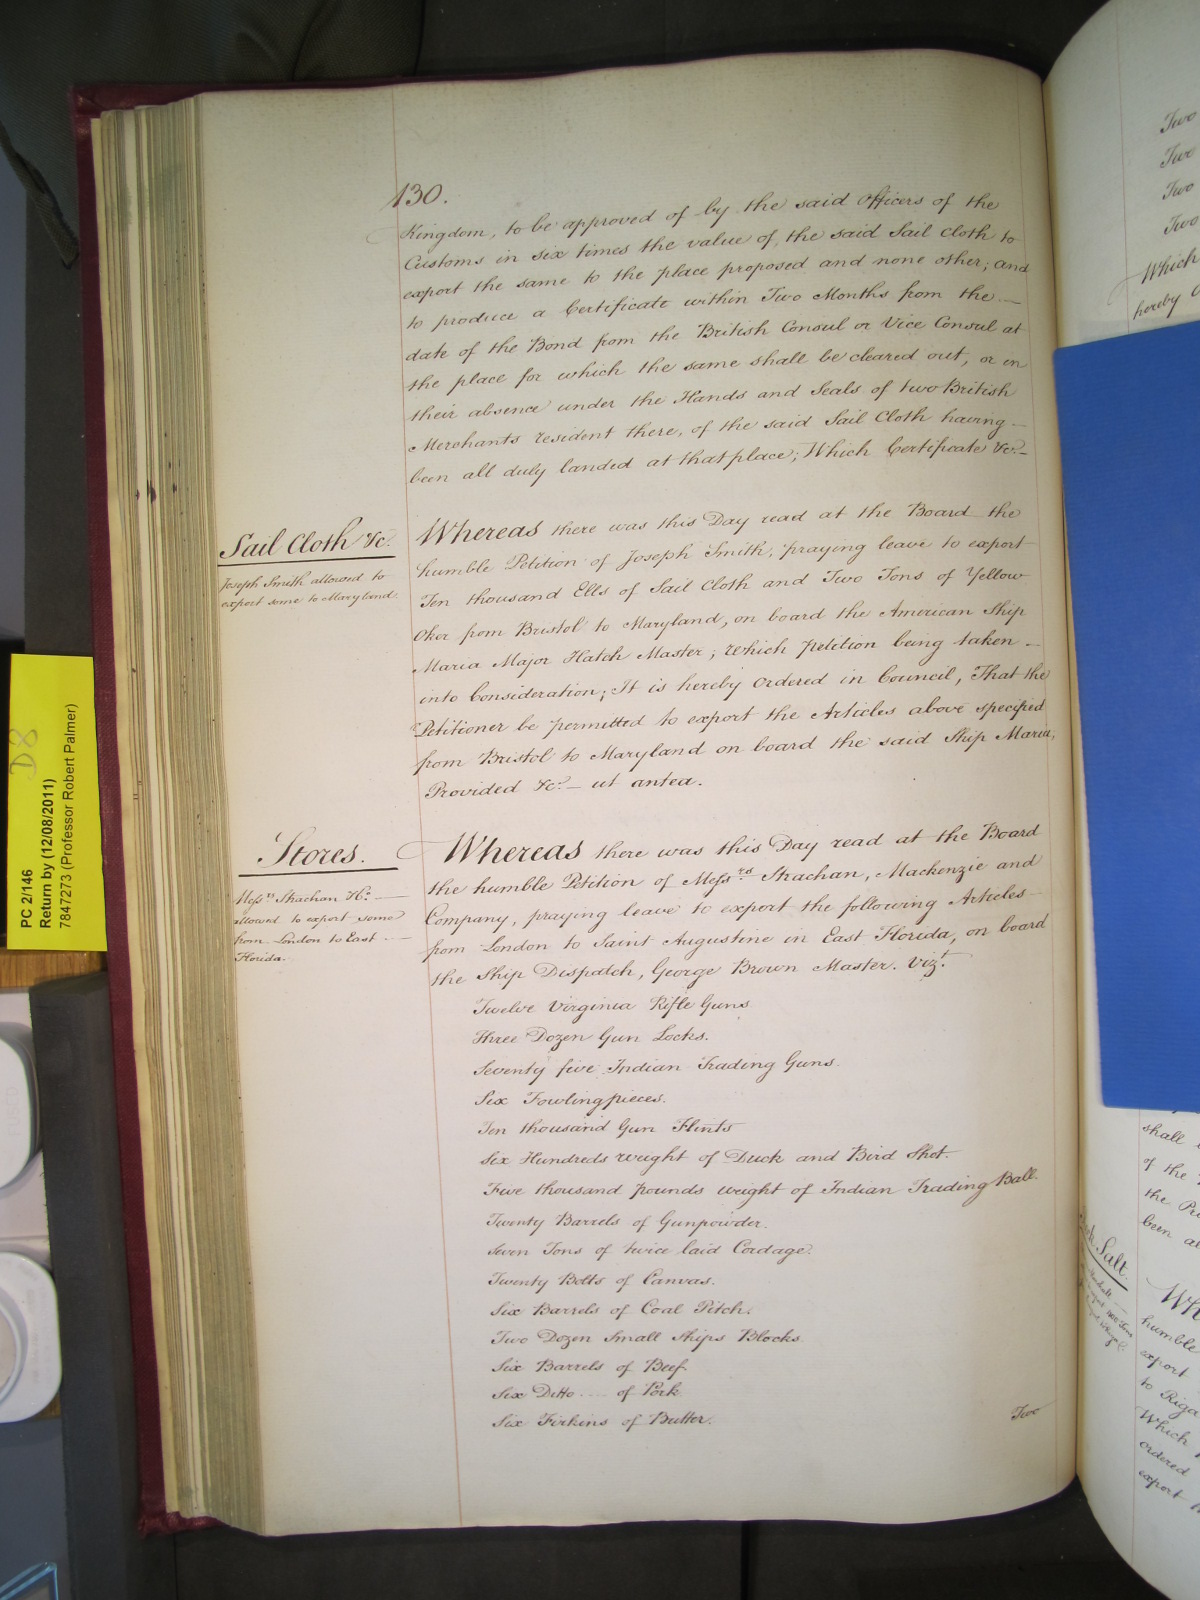 130.
Kingdom, to be approved of by the said Officers of the
Customs in six times the value of the said Sail Cloth to
export the same to the place proposed and none other; and
to produce a Certificate within Two Months from the
date of the Bond from the British Consul or Vice Consul at
the place for which the same shall be cleared out, or in
their absence under the Hands and Seals of two British
Merchants resident there, of the said Sail Cloth having
been all duly landed at that place; Which Certificate &c.
Sail Cloth &c.
Joseph Smith allowed to
export some to Maryland.
Whereas there was this Day read at the Board the
humble Petition of Joseph Smith, praying leave to export
Ten thousand Ells of Sail Cloth and Two Tons of Yellow
Oker from Bristol to Maryland, on board the American Ship
Maria Major Hatch Master; Which Petition being taken
into Consideration; It is hereby Ordered in Council, That the
Petitioner be permitted to export the Articles above specified
from Bristol to Maryland on board the said Ship Maria,
Provided &c. ut antea.
Stores.
Messrs Strachan &Co
allowed to export some
from London to East
Florida.
Whereas there was this Day read at the Board
the humble Petition of Messrs Strachan, Mackenzie and
Company, praying leave to export the following Articles
from London to Saint Augustine in East Florida, on board
the Ship Dispatch, George Brown Master. Vizt.
Twelve Virginia Rifle Guns
Three Dozen Gun Locks.
Seventy five Indian Trading Guns
Six Fowlingpieces.
Ten thousand Gun Flints
Six Hundreds weight of Duck and Bird Shot.
Five thousand pounds weight of Indian Trading Ball.
Twenty Barrels of Gunpowder.
Seven Tons of twice laid Cordage.
Twenty Bolts of Canvas.
Six Barrels of Coal Pitch.
Two Dozen Small Ships Blocks
Six Barrels of Beef
Six Ditto .... of Pork
Six Firkins of Butter.
Two
PC 2/146
Return by (12/08/2011)
7847273 (Professor Robert Palmer)
D8
Two
Two
Two
Two
Which
hereby
shall
of the
the
been
Salt.
Wh
humble
export
to Riga
Which
ordered
export